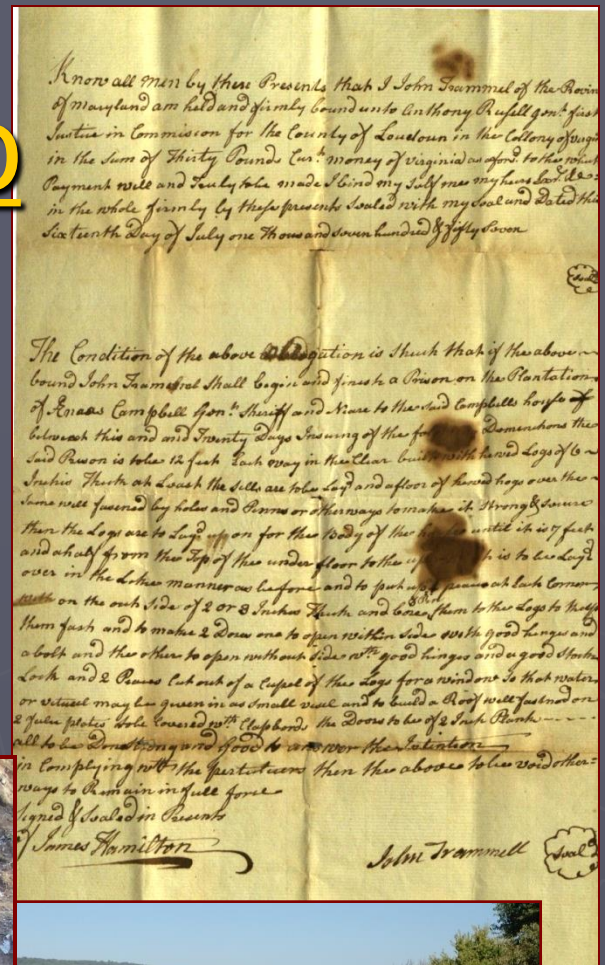 Know all men by these Presents that I John Trammel of the Provin
of maryland am held and firmly bound unto Anthony Rusell gent. first
Justice in Commission for the County of Loudoun in the Collony of virgi
in the Sum of Thirty Pounds Curt. money of virginia as afores. to the which
Payment well and Truly to be made I bind my Self me my heirs Exr. &c
in the whole firmly by these presents Sealed with my Seal and Dated this
Sixteenth Day of July one Thousand Seven hundred & fifty Seven
Seal
The Condition of the above obligation is Shuch that if the above
bound John Trammel Shall begin and finish a Prison on the Plantation
of Eneas Campbell Gent. Sheriff and Neare to the said Campbells house
between this and and Twenty Days Insuing of the Domenchons the
said Prison is to be 12 feet Each way in the Clear built with hewed Logs of 6
Inchis Thick at Least the Sills are to be Layd and a floor of hewed logs over the
Same well fasened by holes and Pinns or otherways to make it Strong & Secure
then the Logs are to Layd up on for the Body of the until it is 7 feet
and a half from the Top of the under floor to the is to be Layd
over in the Like manner as before and to put up peaces at Each Corner
on the out Side of 2 or 3 Inches Thick and them to the Logs to keep
them fast and to make 2 Dors one to open within Side with good hinges and
a bolt and the other to open without Side wth good hinges and a good Stock
Lock and 2 Peaces Cut out of a Cupel of the Logs for a window So that water
or vitual may be given in as Small and to build a Roof well fastned on
2 plates to be Covered wth Clapbord the Doors to be of 2 Inch Plank
all to be Don Strong and Good to answer the Intention
in Complying wth the then the above to be void other=
ways to Remain in full force
Signed & Sealed in Presents
of James Hamilton
John Trammell
Seal